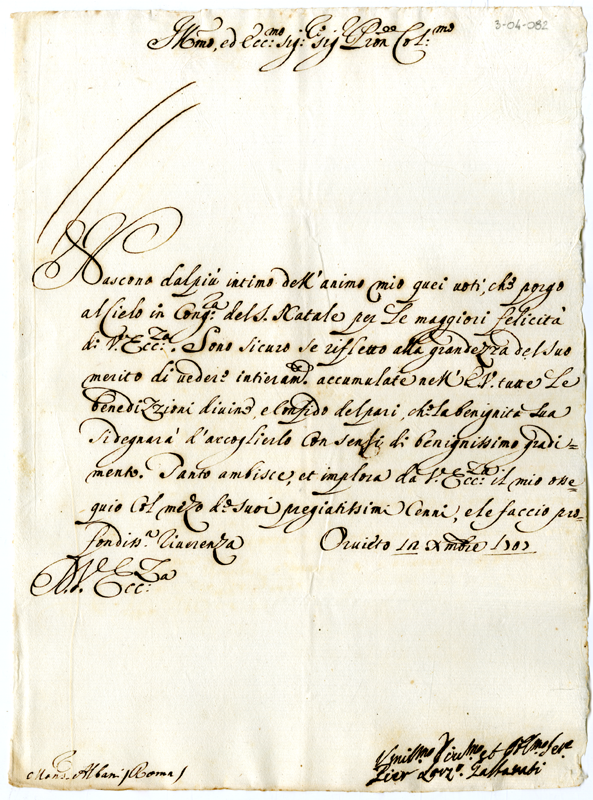 3-04-082
Ill.mo, ed Ecc.mo Sig.r Sig.r Pron Col.mo
Nascono dal più intimo dell'animo mio quei voti, che porgo
al Cielo in Cong.a del S. Natale per le maggiori felicità
di V. Ecc.za. Sono sicuro se rifletto alla grandezza del suo
merito di veder intieram.te accumulate nell'E.V. tutte le
benedizzioni divine, e confido del pari, che la benignità sua
si degnarà d'accoglierlo con sensi di benignissimo gradi=
mento. Tanto ambisce, et implora da V. Ecc.za il mio osse=
quio col mezo de suoi pregiatissimi cenni, e le faccio pro=
fondiss.a riverenza Orvieto 12 Xmbre 1707
D. V. Ecc.za
Mons. Albani / Roma /
Umilmo et Serre
Pier Lorzo